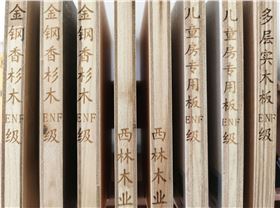 金钢香杉木ENF级
金钢香杉木ENF级
金钢香杉木ENF级
西林木业
西林木业
儿童房专用板ENF级
儿童房专用板ENF级
多层实木板ENF级